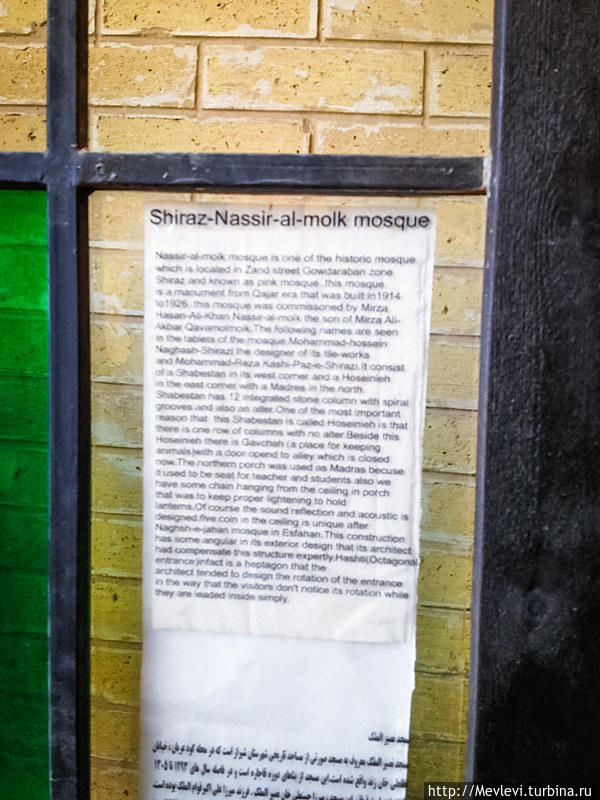 Shiraz-Nassir-al-molk mosque
Nassir-al-molk mosque is one of the historic mosque
which is located in Zand street Gowdaraban zone
Shiraz and known as pink mosque .this mosque
is a manument from Qajar era that was built in1914
to1926 .this mosque was commissoned by Mirza
Hasan-Ali-Khan Nassir-al-molk the son of Mirza Ali-
Akbar Qavamolmolk.The following names are seen
in the tablets of the mosque.Mohammad-hossein
Naghash-Shirazi the designer of its tile-works
and Mohammad-Reza Kashi-Paz-e-Shirazi.It consist
of a Shabestan in its west corner and a Hoseinieh
in the east corner with a Madres in the north.
Shabestan has 12 integrated stone column with spiral
grooves and also an alter.One of the most important
reason that this Shabestan is called Hoseinieh is that
there is one row of columns with no alter.Beside this
Hoseinieh there is Gavchah (a place for keeping
animals)with a door opend to alley which is closed
now.The northern porch was used as Madras becuse
it used to be seat for teacher and students also we
have some chain hanging from the ceiling in porch
that was to keep proper lightening to hold
lanterns.Of course the sound reflection and acoustic is
designed.five coin in the ceiling is unique after
Naghsh-e-jahan mosque in Esfahan.This construction
has some angular in its exterior design that its architect
had compensate this structure expertly.Hashti(Octagonal
entrance)infact is a heptagon that the
architect tended to design the rotation of the entrance
in the way that the visitors don't notice its rotation while
they are leaded inside simply.
مسجد نصیر الملک
مسجد نصیر الملک معروف به مسجد صورتی از مساجد تاریخی شهرستان شیراز است که در محله گود عربان ، خیابان
لطفعلی خان زند واقع شده است.این مسجد از بناهای دوره قاجاریه است و در فاصله سال های ۱۲۹۳ تا ۱۳۰۵
حسنعلی خان نصیر الملک ، فرزند میرزا علی اکبر قوام الملک بوده است.
http://Mevlevi.turbina.ru